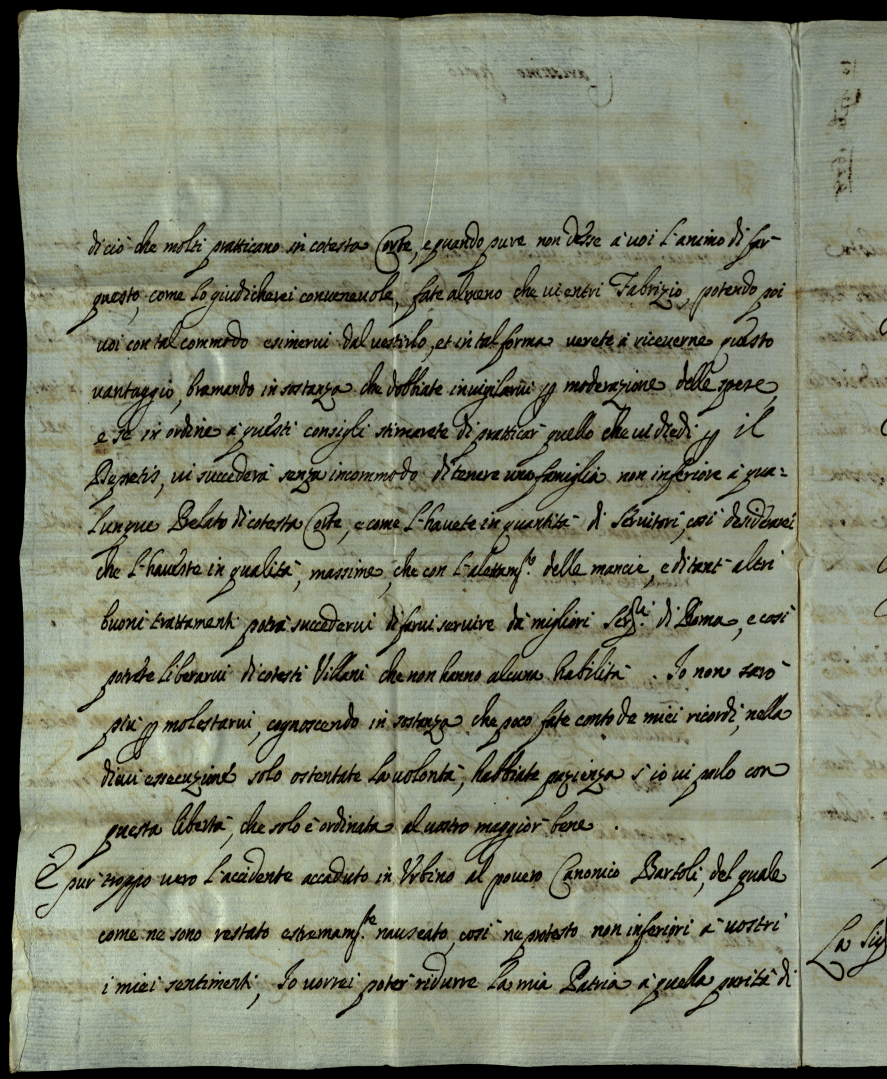 di ciò che molti pratticano in cotesta Corte, e quando pure non desse à uoi l'animo di far
questo, come lo giudicherei conueneuole, fate almeno che ui entri Fabrizio, potendo poi
uoi con tal commodo esimerui dal uestirlo, et in tal forma uerete à riceuerne questo
uantaggio, bramando in sostanza che dobbiate inuigilarui p moderazione delle spese,
e se in ordine à questi consigli stimarete di pratticar quello che ui diedi p il
Depretis, ui succederà senza incommodo di tenere una famiglia non inferiore à qua=
lunque Prelato di cotesta Corte, e come l'hauete in quantità di Seruitori, così desiderarei
che l'haueste in qualità, massime, che con l'alettam.to delle mancie, e di tant'altri
buoni trattamenti potrà succederui di farui seruire da migliori Ser.ri di Roma, e così
potrete liberarui di cotesti Villani che non hanno alcuna habilità. Io non sarò
più p molestarui, cognoscendo in sostanza che poco fate conto de miei ricordi, nella
di cui essecuzione solo ostentate la uolontà, habbiate pazienza s'io ui parlo con
questa libertà, che solo è ordinata al uostro maggior bene.
È pur troppo uero l'accidente accaduto in Vrbino al pouero Canonico Bartoli, del quale
come ne sono restato estremam.te nauseato, così ne protesto non inferiori à uostri
i miei sentimenti, Io uorrei poter ridurre la mia Patria à quella purità di
La Sig